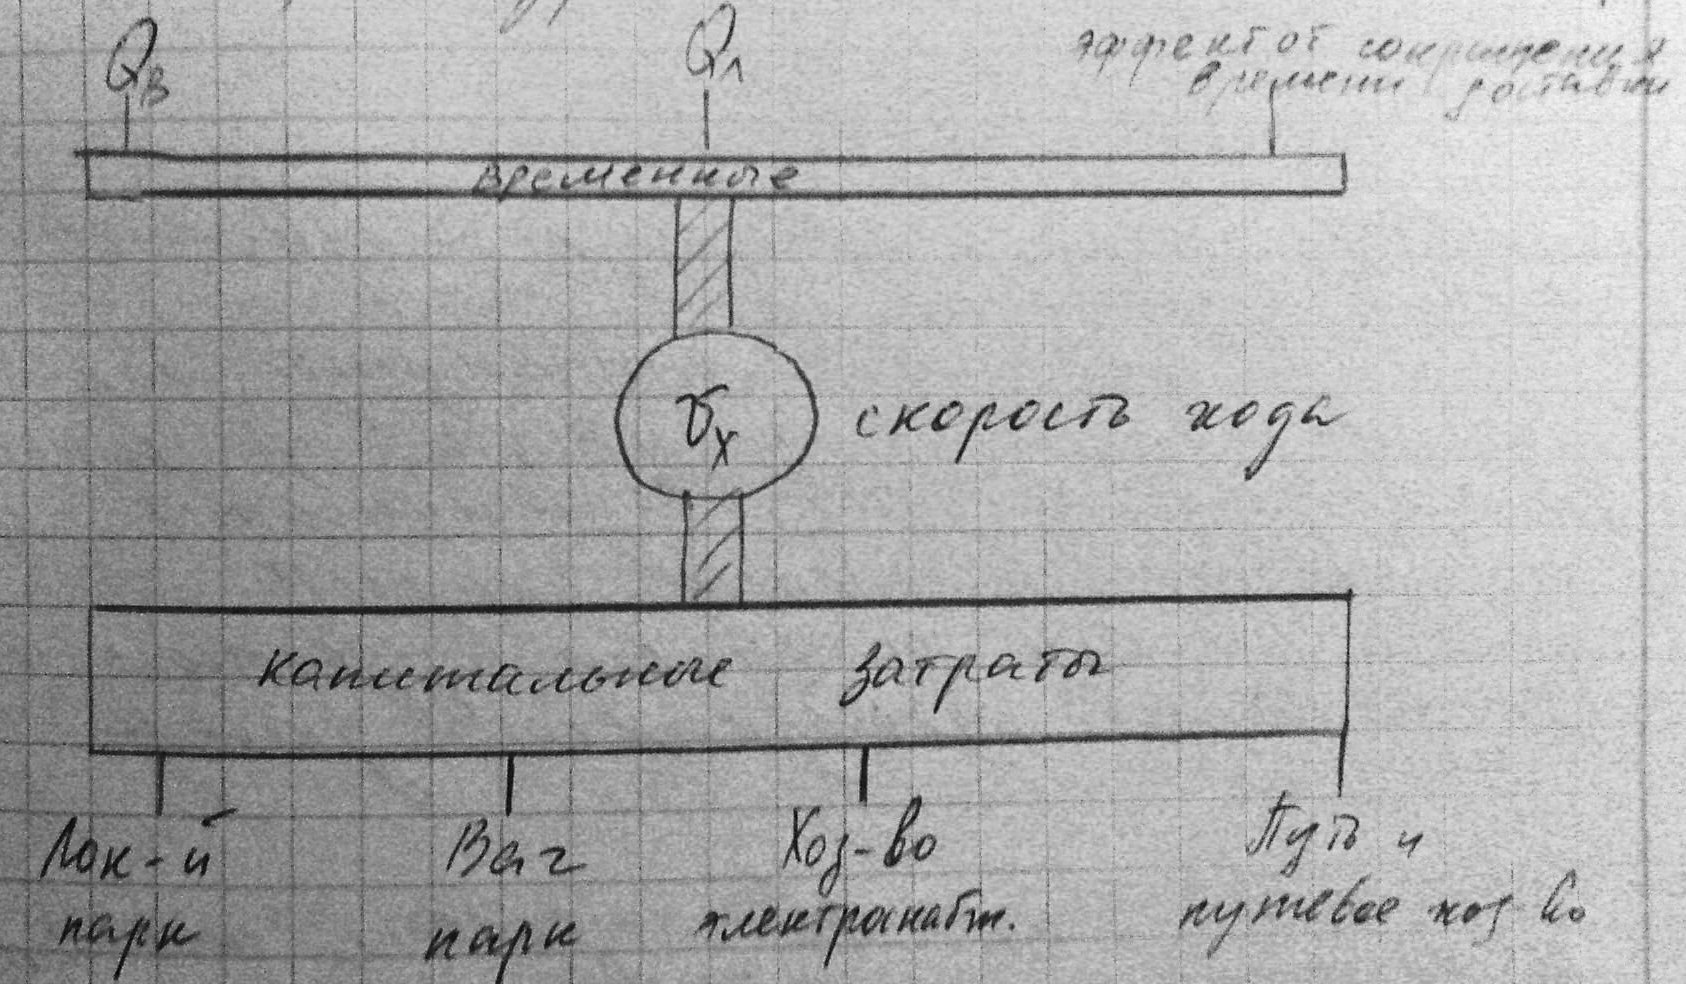 Qв Qл эффект от сокращения
времени доставки
временные
vх скорость хода
капитальные затраты
Лок-й Ваг Хоз-во Путь и
парк парк электранабж. путевое хоз во